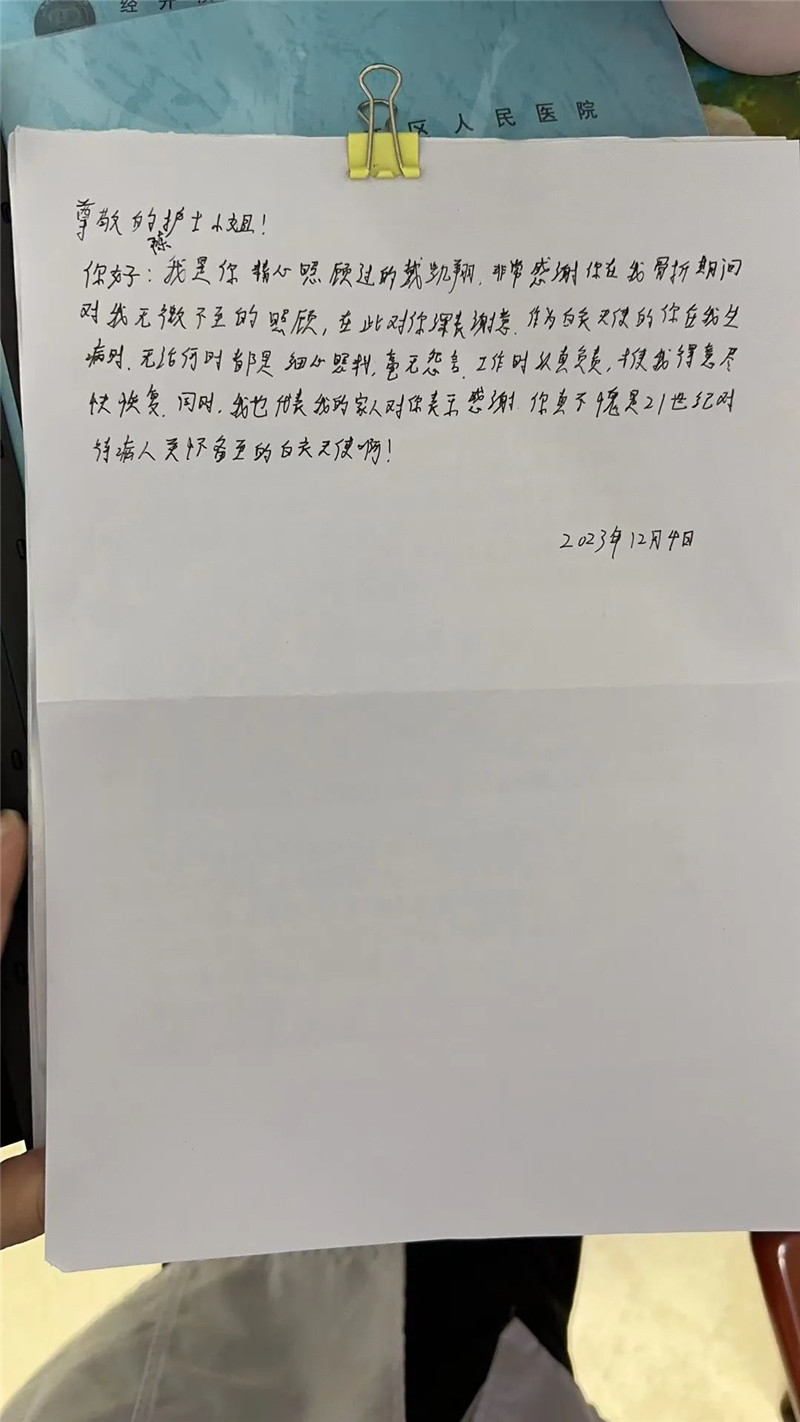 经开
区人民医院
尊敬的陈护士小姐！
你好：我是你精心照顾过的戴凯翔，非常感谢你在我骨折期间
对我无微不至的照顾，在此对你深表谢意。作为白衣天使的你在我生
病时，无论何时都是细心照料，毫无怨言，工作时认真负责，才使我得意尽
快恢复。同时，我也代表我的家人对你表示感谢。你真不愧是21世纪对
待病人关怀备至的白衣天使啊！
2023年12月4日